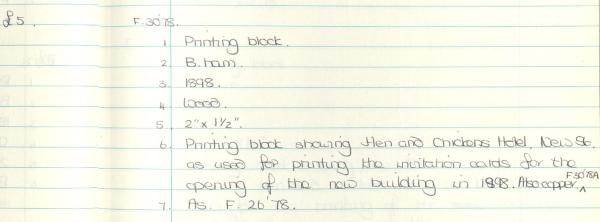 £5. F.30'78.
1 Printing block.
2 B.ham.
3 1898.
4 Wood.
5 2" x 1½".
6. Printing block showing Hen and Chickens Hotel, New St,
as used for printing the invitation cards for the
opening of the new building in 1898. Also copper ^ F30'78A
7. As. F. 26'78.